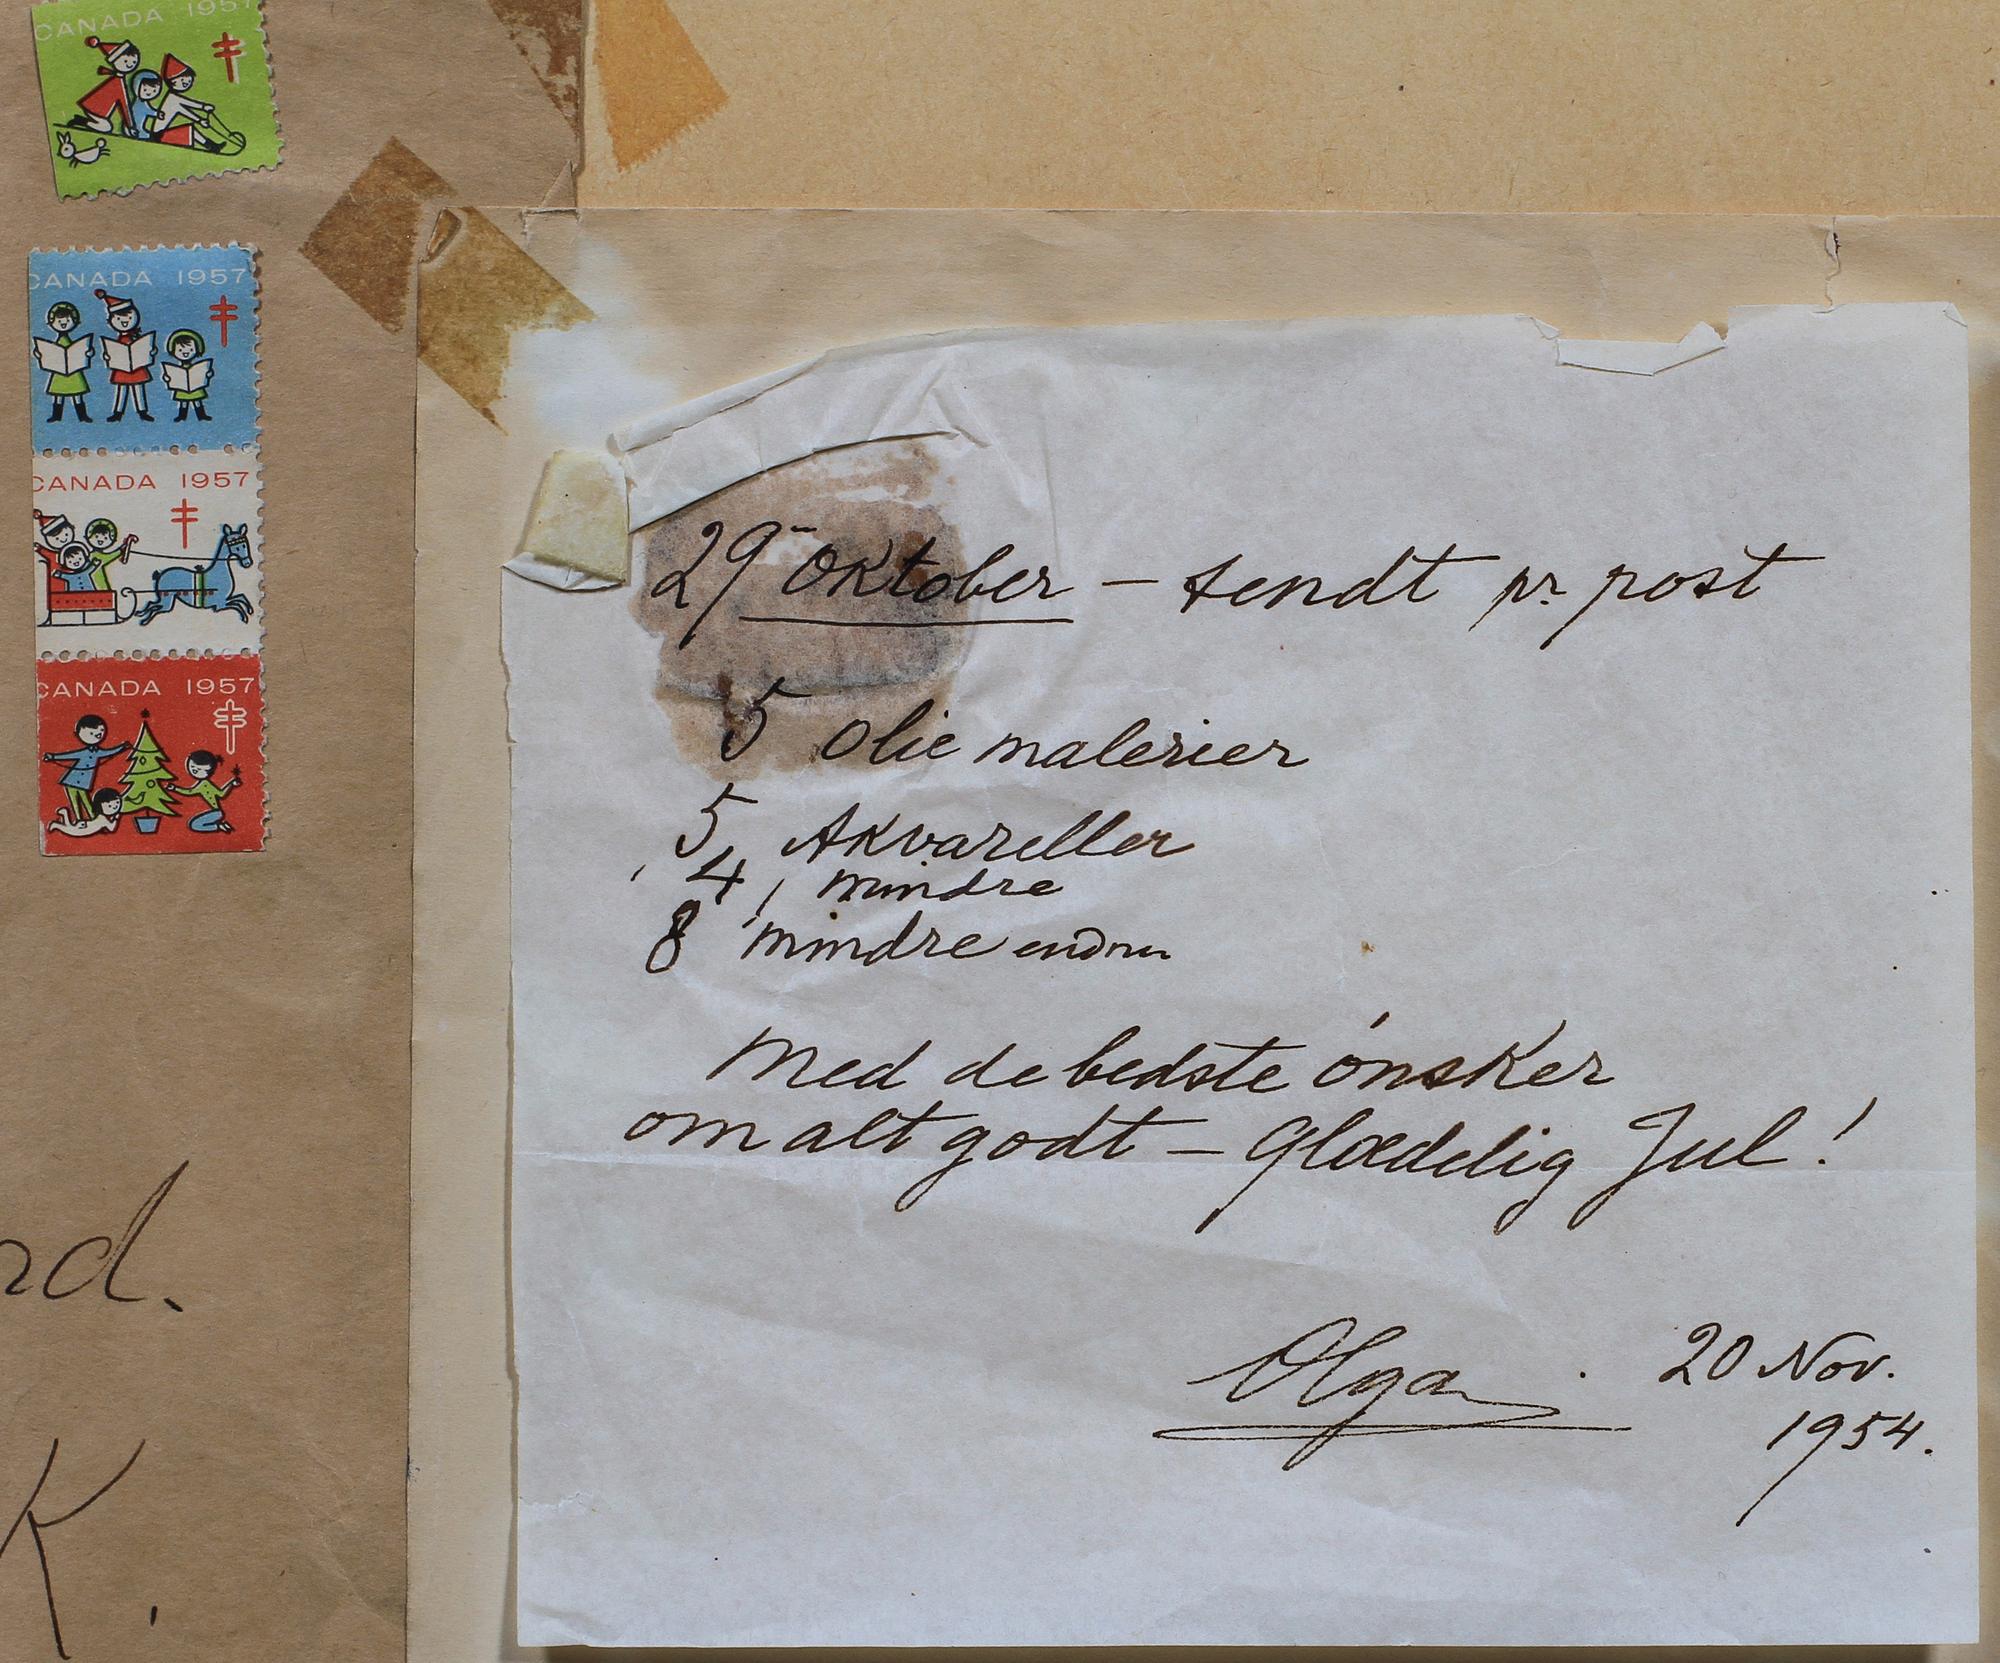 CANADA 1957
CANADA 1957
CANADA 1957
CANADA 1957
rd.
K.
29 Oktober – sendt pr. post
5 Olie malerier
5, Akvareller
4, mindre
8 mindre endnu
Med de bedste ónsker
om alt godt – Glædelig Jul!
Olga. 20 Nov.
1954.